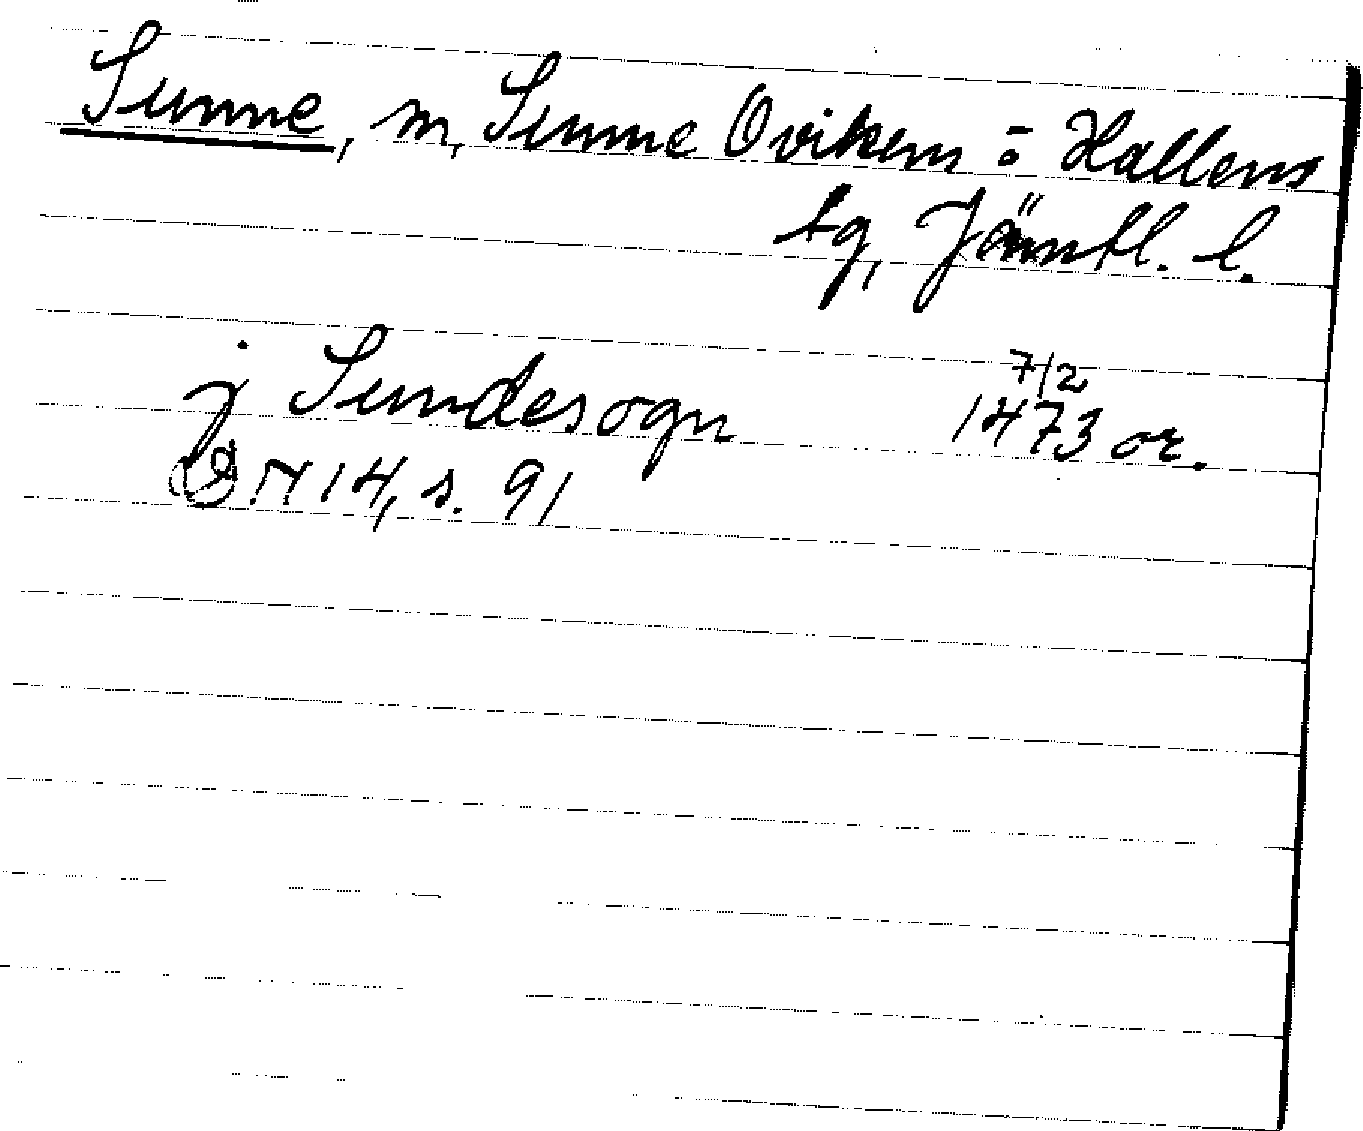 Sunne, sn, Sunne Ovikens o Hallens
tg, Jämtl. l.
j Sundesogn 7/2 1473 or.
DN 14, s. 91